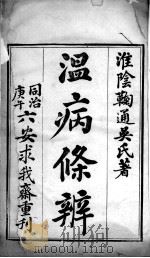 淮陰鞠通吳氏著
溫病條辨
同治
庚午
六安求我齋重刊